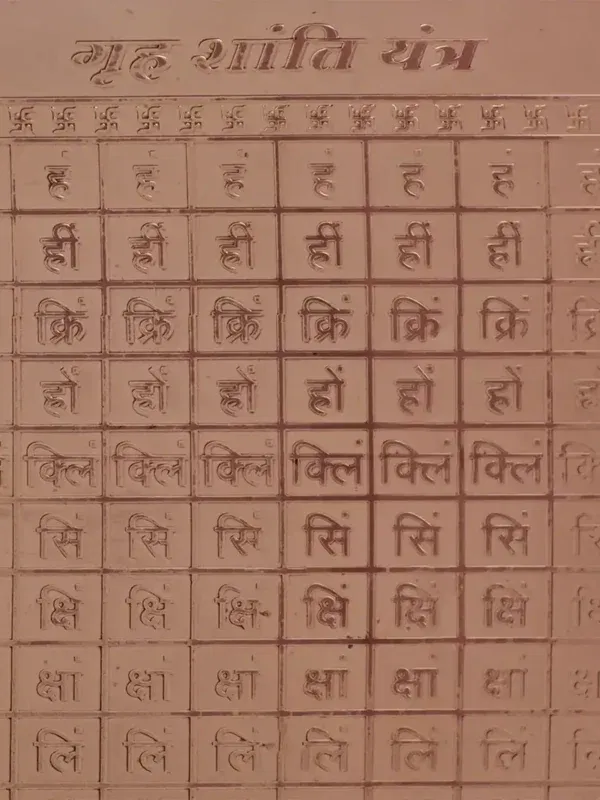 गृह शांति यंत्र
ह्रं ह्रं ह्रं ह्रं ह्रं ह्रं
ह्रीं ह्रीं ह्रीं ह्रीं ह्रीं ह्रीं
क्रिं क्रिं क्रिं क्रिं क्रिं क्रिं
ह्रों ह्रों ह्रों ह्रों ह्रों ह्रों
क्लिं क्लिं क्लिं क्लिं क्लिं क्लिं
सिं सिं सिं सिं सिं सिं
क्षिं क्षिं क्षिं क्षिं क्षिं क्षिं
क्षां क्षां क्षां क्षां क्षां क्षां
लिं लिं लिं लिं लिं लिं